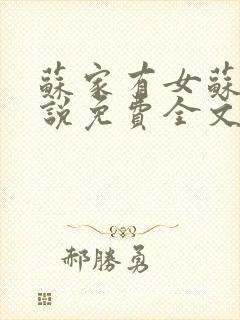 蘇家有女蘇
說免費全文
郝勝勇